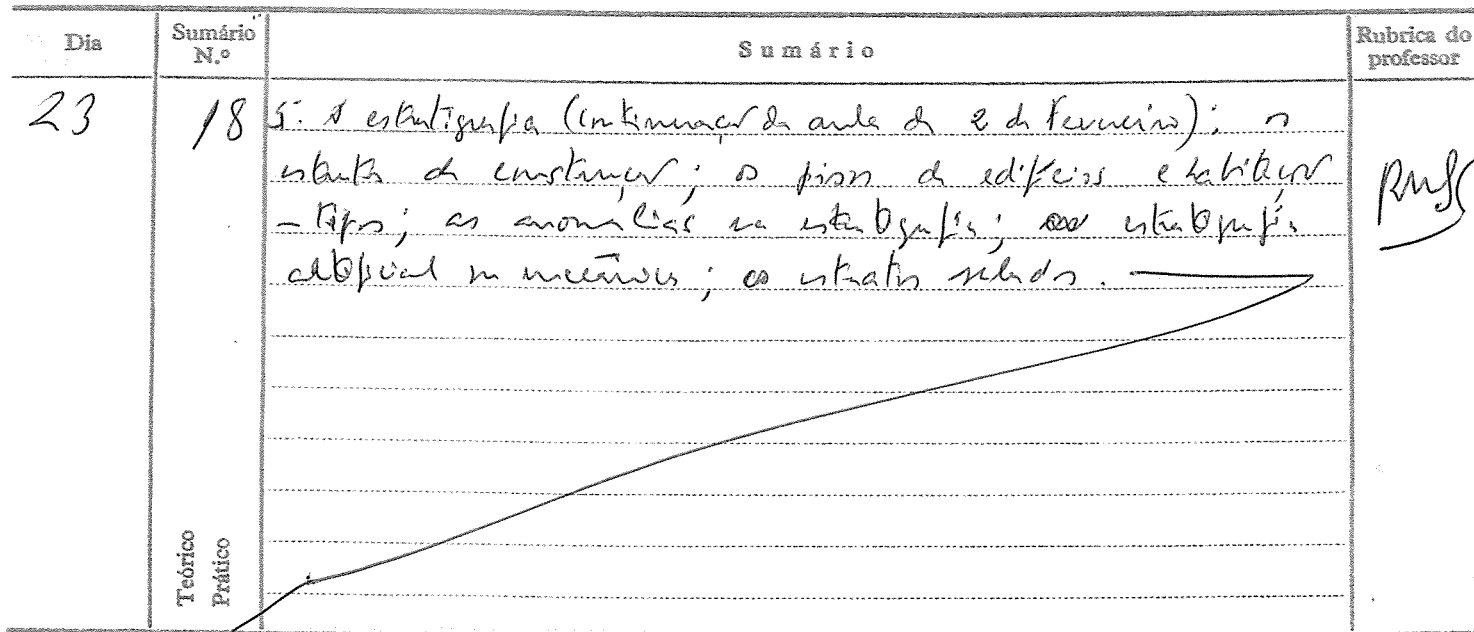 Dia
Sumário N.º
Sumário
Rubrica do professor
23
18
5. A estratigrafia (continuação da aula de 2 de Fevereiro); os
estratos de construção; os pisos de edifícios e habitação
- tipos; as anomalias na estratigrafia; estratigrafia
artificial ou mecânica; os estratos selados.
Teórico
Prático